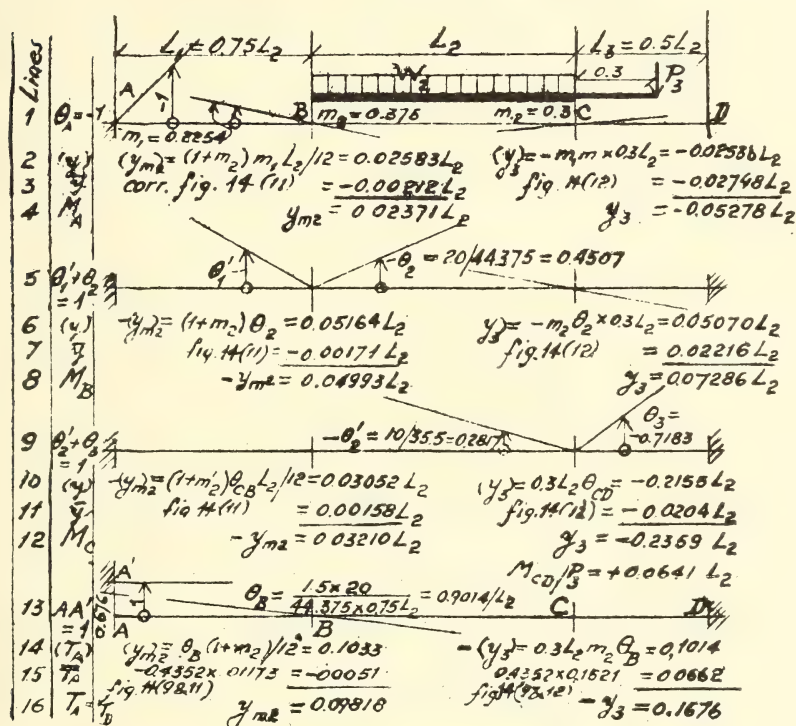 Lines
L₁ = 0.75L₂ L₂ L₃ = 0.5L₂
A W₂ 0.3 P₃
1 θ_A = -1 m₁ = 0.2254 B m₂ = 0.375 m₂ = 0.3 C D
2 (y) (y_m2) = (1+m₂) m₁ L₂/12 = 0.02583L₂ (y₃) = -m₁m × 0.3L₂ = -0.02530L₂
3 ȳ corr. fig. 14 (11) = -0.00212L₂ fig. 14(12) = -0.02748L₂
4 M_A y_m2 = 0.02371L₂ y₃ = -0.05278L₂
5 θ₁'+θ₂ = 1 θ₁' -θ₂ = 20/44.375 = 0.4507
6 (y) -(y_m2) = (1+m₂) θ₂ = 0.05164L₂ y₃) = -m₂θ₂ × 0.3L₂ = 0.05070L₂
7 ȳ fig. 14(11) = -0.00171L₂ fig. 14(12) = 0.02216L₂
8 M_B -y_m2 = 0.04993L₂ y₃ = 0.07286L₂
9 θ₂'+θ₃ = 1 -θ₂' = 10/35.5 = 0.2817 θ₃ = -0.7183
10 (y) -(y_m2) = (1+m₂')θ_CB L₂/12 = 0.03052L₂ (y₃) = 0.3L₂θ_CD = -0.2155L₂
11 ȳ fig 14(11) = 0.00158L₂ fig. 14(12) = -0.0204L₂
12 M_C -y_m2 = 0.03210L₂ y₃ = -0.2359L₂
M_CD/P₃ = +0.0641 L₂
A'
13 AA' = 1 0.676 A θ_B = 1.5×20 / 44.375×0.75L₂ = 0.9014/L₂ B C D
14 (T_A) (y_m2) = θ_B(1+m₂)/12 = 0.1033 -(y₃) = 0.3L₂m₂θ_B = 0.1014
15 T̄_A -0.4352×.01173 = -0.0051 0.4352×0.1521 = 0.0662
fig. 14(9&11) fig 14(9&12)
16 T_A = T_B y_m2 = 0.09818 -y₃ = 0.1676